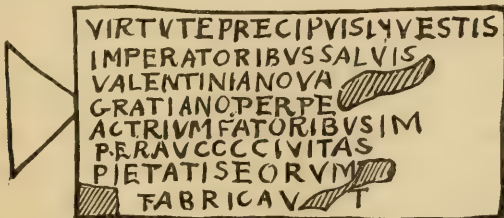 VIRTVTEPRECIPVISLYVESTIS
IMPERATORIBVSSALVIS
VALENTINIANOVA
GRATIANO.PERPE
ACTRIVMFATORIBVSIM
P.ERAVCCCCIVITAS
PIETATISEORVM
FABRICAV T